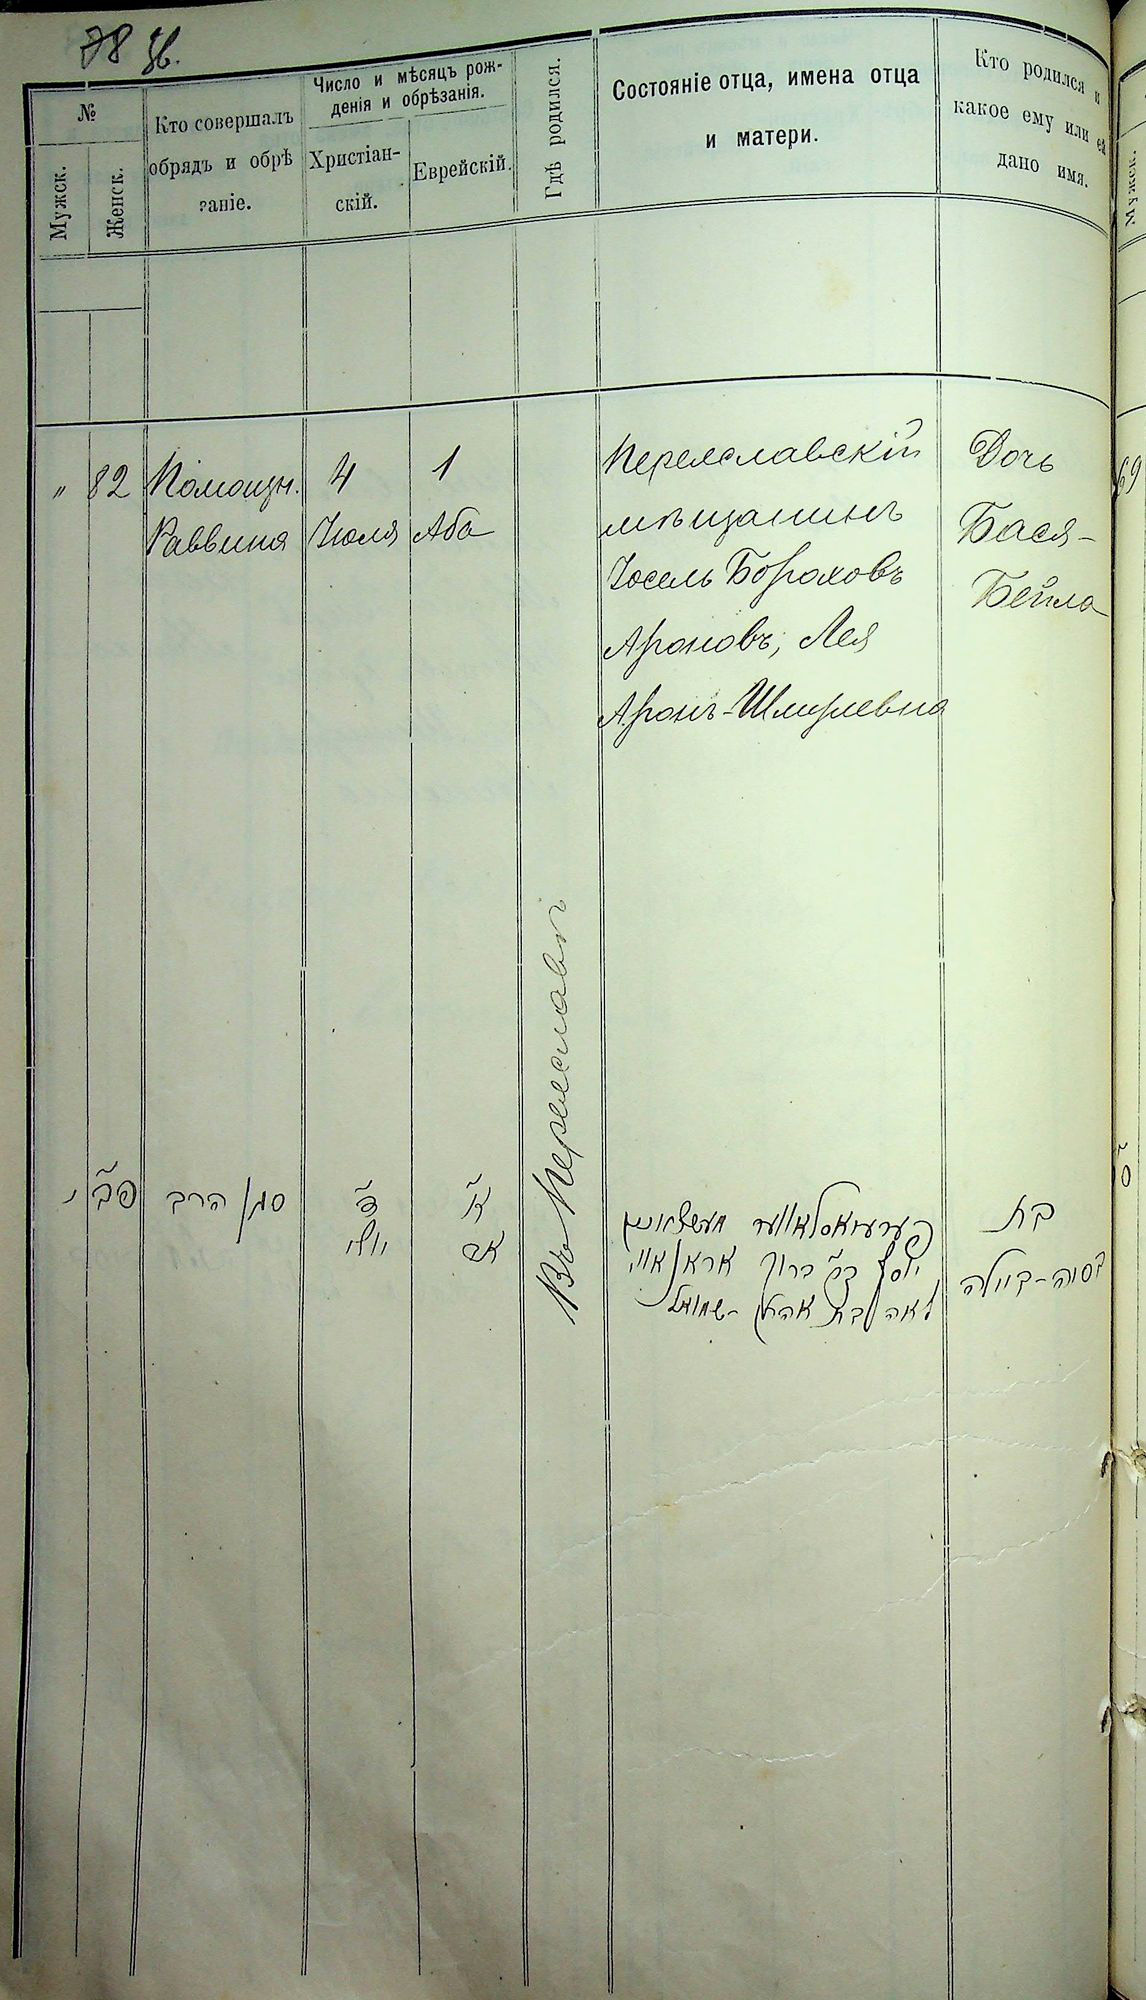 78 об.
№
Мужск.
Женск.
Кто совершалъ
обрядъ и обрѣ
заніе.
Число и мѣсяцъ рож-
денія и обрѣзанія.
Христіан-
скій.
Еврейскій.
Гдѣ родился.
Состояніе отца, имена отца
и матери.
Кто родился и
какое ему или ей
дано имя.
Мужск.
"
82
Помощн.
Раввина
4
Іюля
1
Аба
Въ Переяславѣ
Переяславскій
мѣщанинъ
Іосель Бороховъ
Ароновъ, Лея
Аронъ-Шмулевна
Дочь
Бася-
Бейла
69
פב
סגן הרב
ד
יולי
א
אב
פערעיאסלאווער
יוסף ב״ר ברוך
לאה בת אהרן - שמואל
בת
בסיה - ביילה